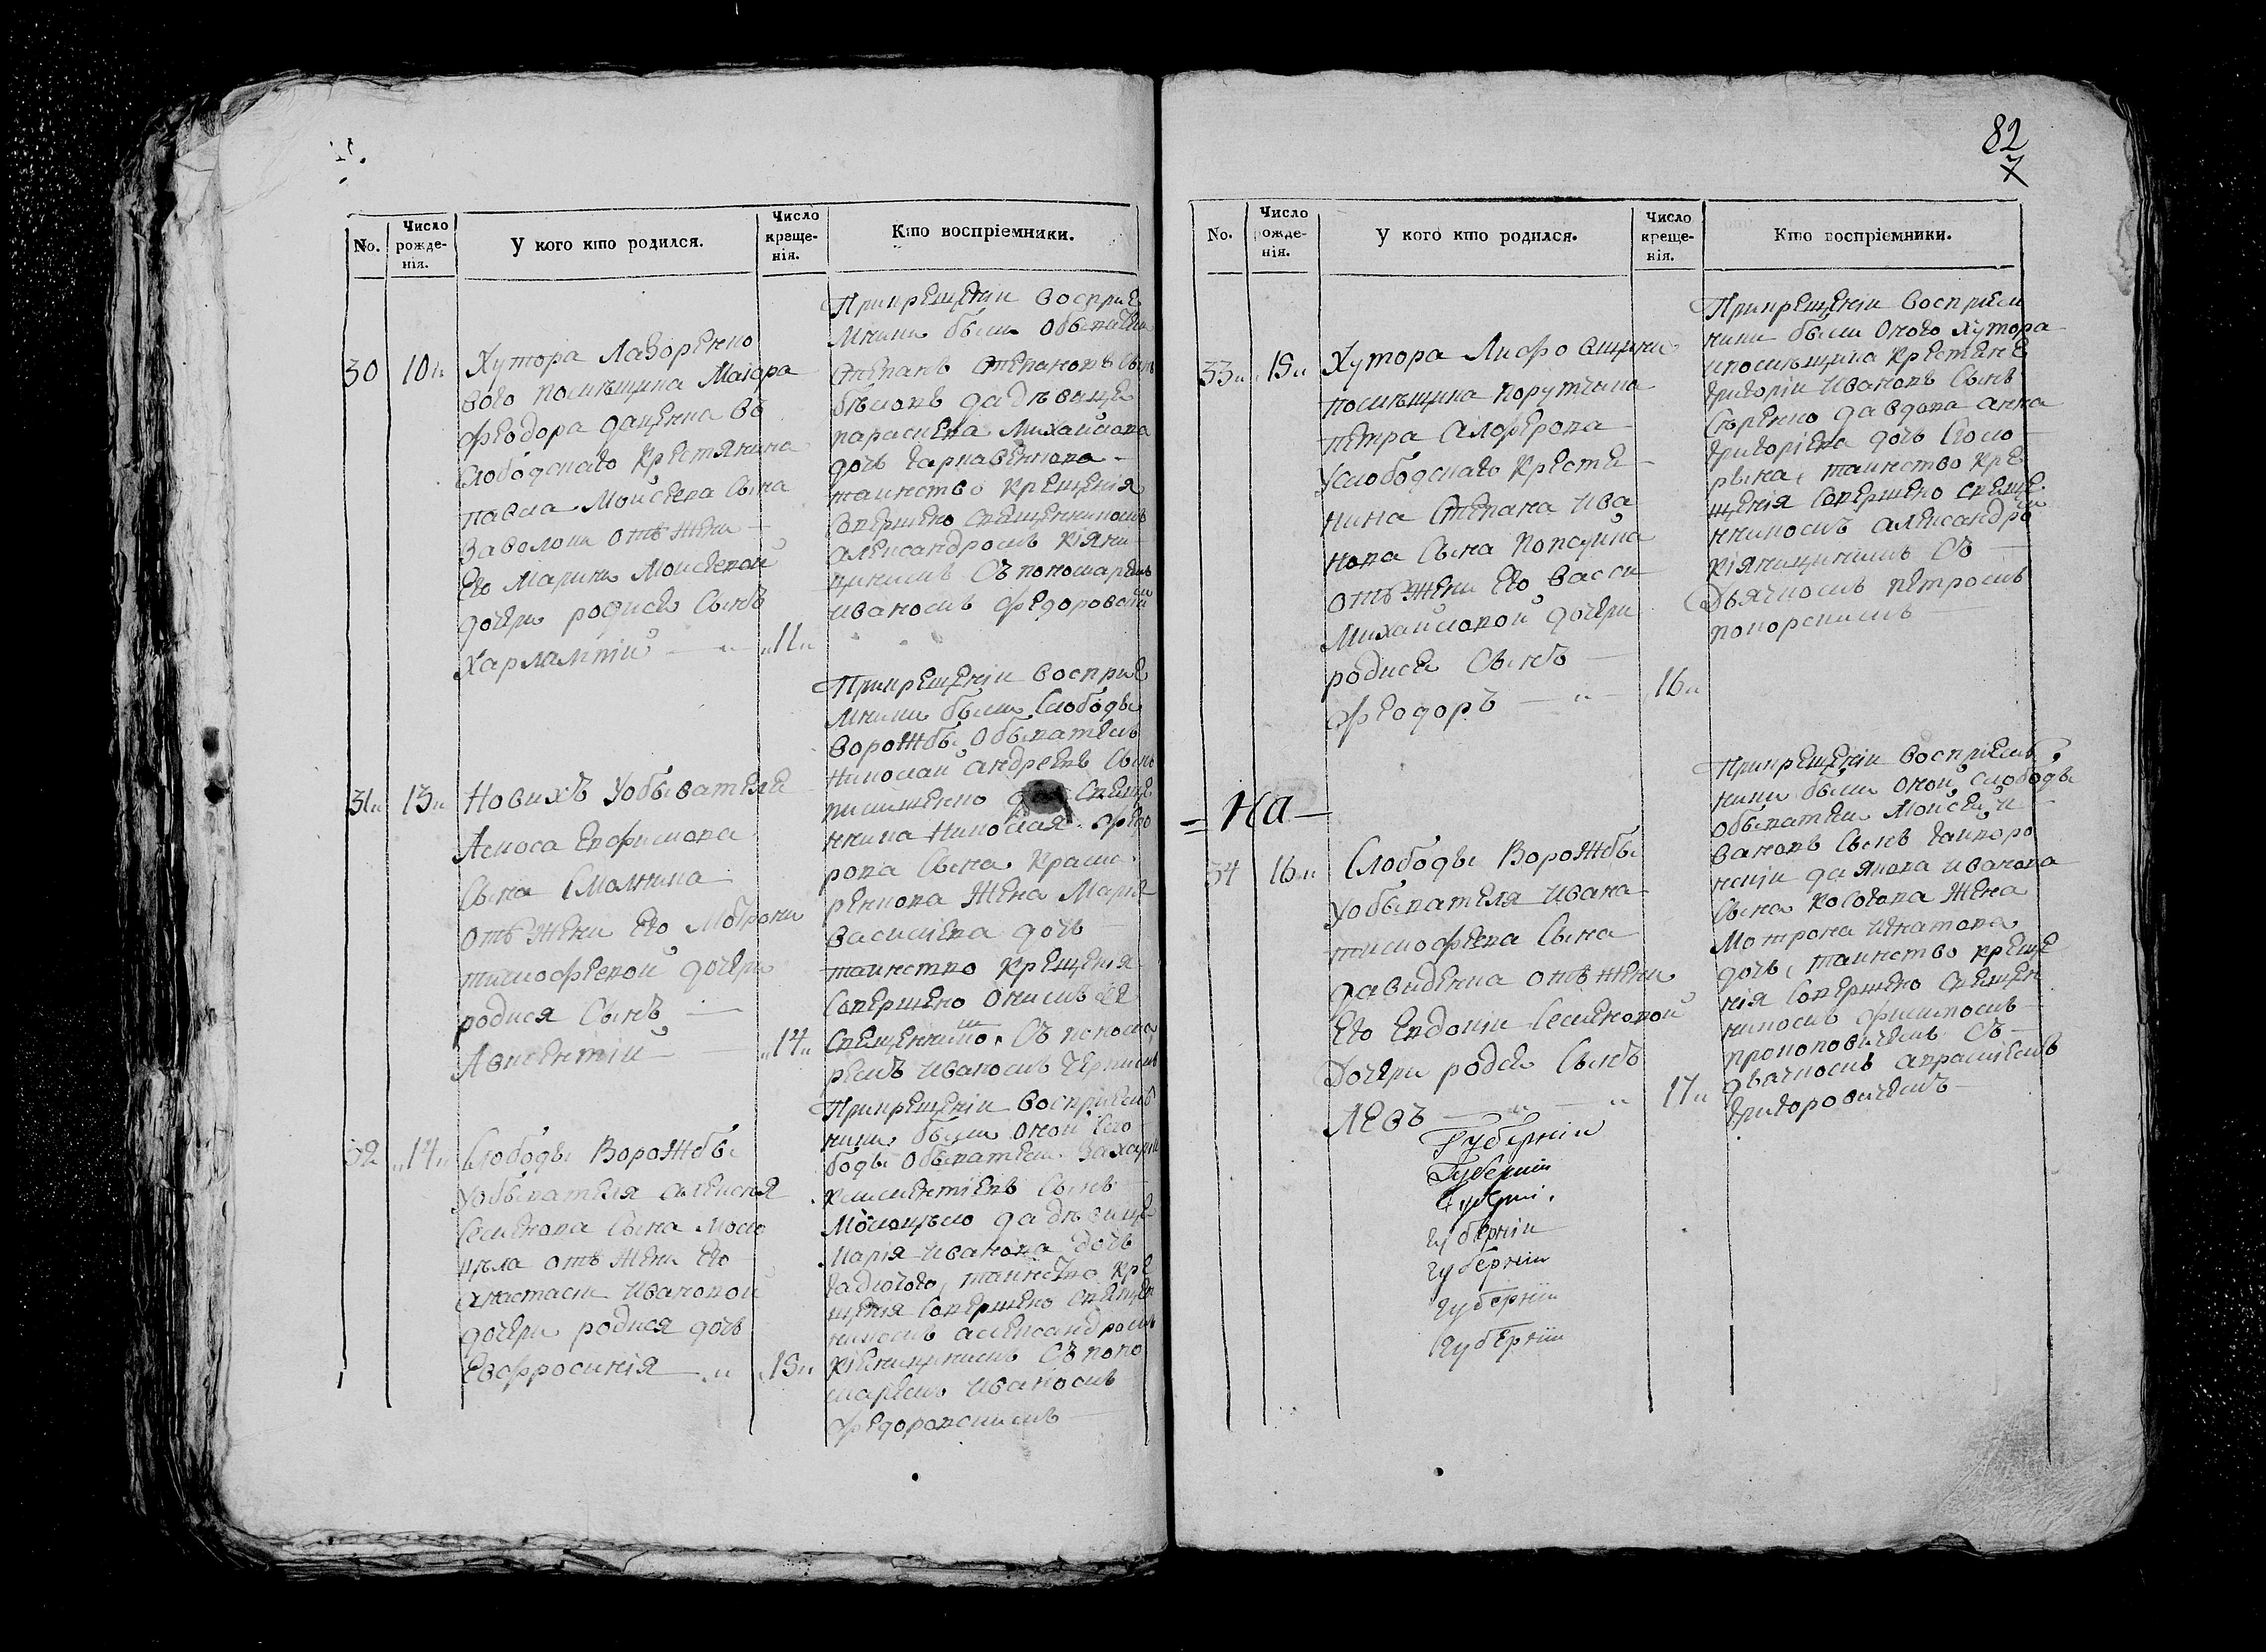 No.
Число рожде-нія.
У кого кто родился.
Число креще-нія.
Кто воспріемники.
30
10
Хутора Лазоренко
вого помѣщика Маіора
Феодора даценка въ
слободскаго крестянина
павла Моисеева сына
Заволоки отъ жени
его Марини Моисеевой
дочери родися сынъ
Харлампій
11
Прикрещеніи восприе
мники были обыватели
Степанъ Степановъ сынъ
бѣловъ да дѣвица
параскева Михайлова
дочь
таинство крещенія
совершено священникомъ
александромъ кіяни
цинимъ съ пономаремъ
иваномъ федоровскимъ
31
13
Новихъ Уобывателя
Якова Евфимова
сына Смалкина
отъ жени его Мотрони
тимофеевой дочери
родися сынъ
Авксентій
14
Прикрещеніи восприе
мники были слободы
ворожбы обыватель
Николай андреевъ сынъ
пилипенко да свяще
нника Николая федо
рова сына
жена Марія
василиева дочь
таинство крещенія
совершено онимъ же
священникомъ съ понома
ремъ иваномъ
32
14
Слободы Ворожбы
уобывателя алексея
семенова сына Моло
цѣла отъ жени его
анастасіи ивановой
дочери родися дочь
Евфросинія
15
Прикрещеніи воспріем
ники были оной сло
боды обыватели Захарій
климентіевъ сынъ
Молоцѣло да дѣвица
марія иванова дочь
таинство кре
щенія совершено священ
никомъ александромъ
кіяницинимъ съ поно
маремъ иваномъ
федоровскимъ
82
7
No.
Число рожде-нія.
У кого кто родился.
Число креще-нія.
Кто воспріемники.
33
15
Хутора Лифовщини
помѣщика порутчика
петра алферова
Услободскаго крестя
нина Степана ива
нова сына
отъ жени его васси
Михайловой дочери
родися сынъ
Феодоръ
16
Прикрещеніи воспріем
ники были оного хутора
ипомѣщика крестяне
григорій ивановъ сынъ
Сѣренко да вдова анна
григоріева дочь
таинство кре
щенія совершено свяще
нникомъ александромъ
кіяницинимъ съ
Дьячкомъ петромъ
поморскимъ
= на —
34
16
Слободы Ворожбы
уобывателя ивана
тимофеева сына
давиденка отъ жени
его евдокіи семеновой
Дочери родся сынъ
ЛЕВЪ
17
Прикрещеніи воспріем
ники были оной слободы
обыватели Моисей и
вановъ сынъ
да якова иванова
сына жена
Мотрона игнатова
дочь, таинство креще
нія совершено священ
никомъ филипомъ
прокоповичемъ съ
дьячкомъ
григоровичемъ
Губерніи
Губерніи
Губерні
губерніи
губерніи
губерніи
губерніи